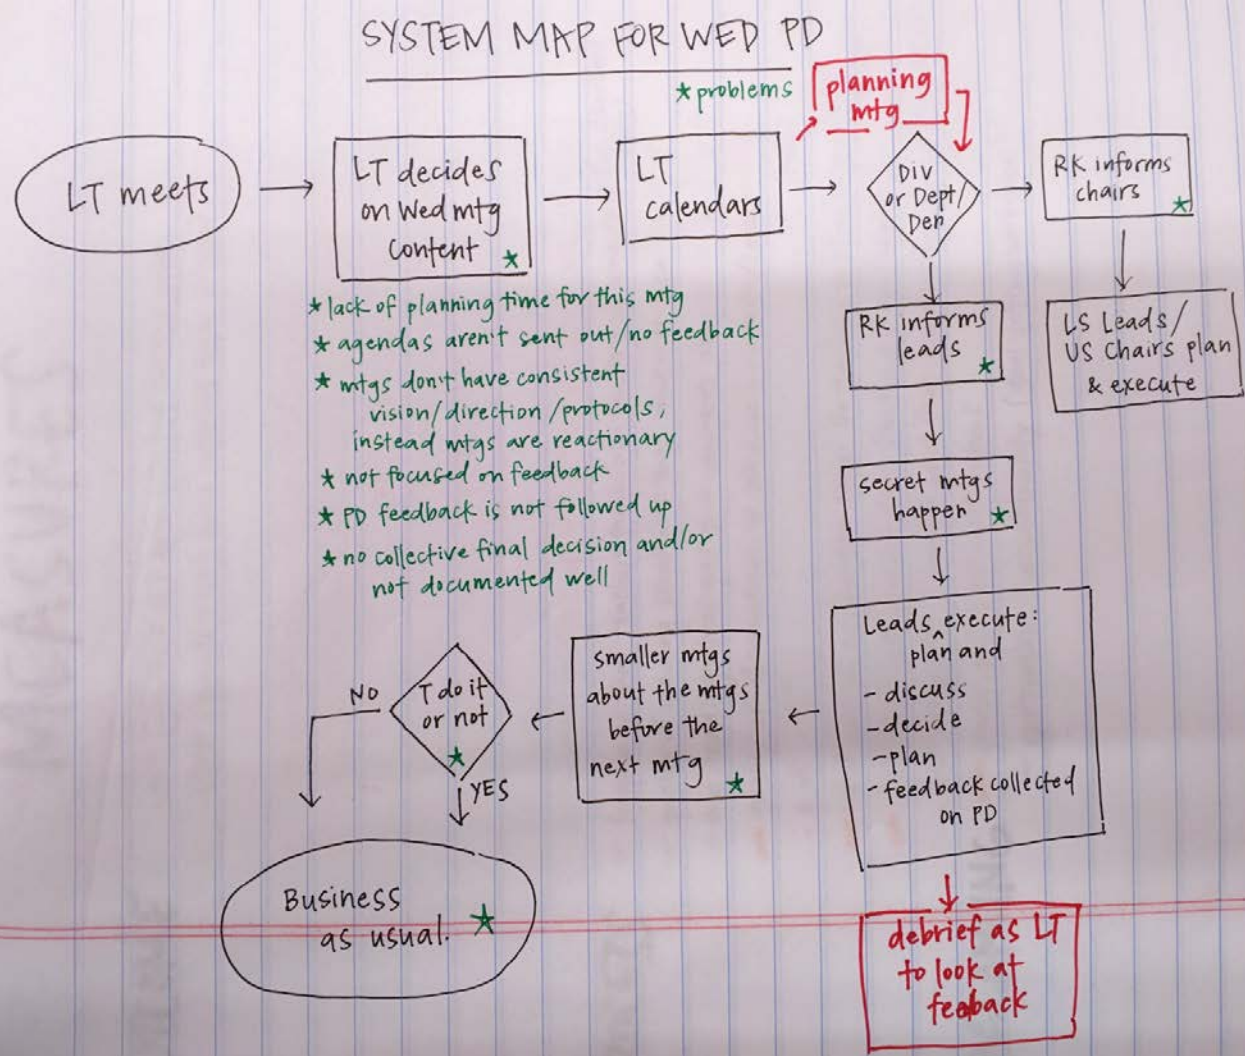 SYSTEM MAP FOR WED PD
* problems
planning
mtg
LT meets
LT decides
on Wed mtg
Content *
LT
calendars
Div
or Dept/
Den
RK informs
chairs
*
* lack of planning time for this mtg
* agendas aren't sent out/no feedback
* mtgs don't have consistent
vision/direction/protocols,
instead mtgs are reactionary
* not focused on feedback
* PD feedback is not followed up
* no collective final decision and/or
not documented well
RK informs
leads
*
LS Leads/
US Chairs plan
& execute
secret mtgs
happen *
Leads ^ execute:
plan and
- discuss
- decide
- plan
- feedback collected
on PD
smaller mtgs
about the mtgs
before the
next mtg *
T do it
or not
*
NO
YES
Business
as usual. *
debrief as LT
to look at
feedback